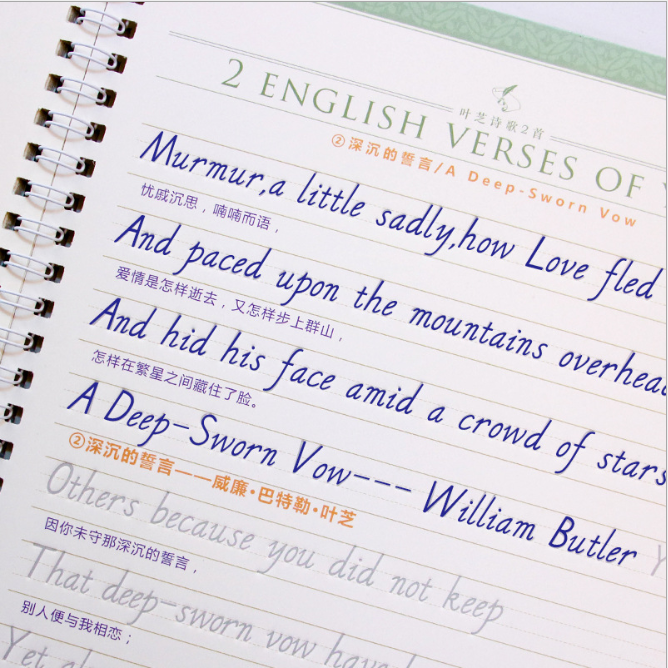 叶芝诗歌2首
2 ENGLISH VERSES OF
②深沉的誓言/A Deep-Sworn Vow
Murmur,a little sadly,how Love fled
忧戚沉思，喃喃而语，
And paced upon the mountains
爱情是怎样逝去，又怎样步上群山，
And hid his face amid a crowd of stars
怎样在繁星之间藏住了脸。
A Deep-Sworn Vow--- William Butler
②深沉的誓言——威廉·巴特勒·叶芝
Others because you did not keep
因你未守那深沉的誓言，
That deep-sworn vow have
别人便与我相恋；
Yet